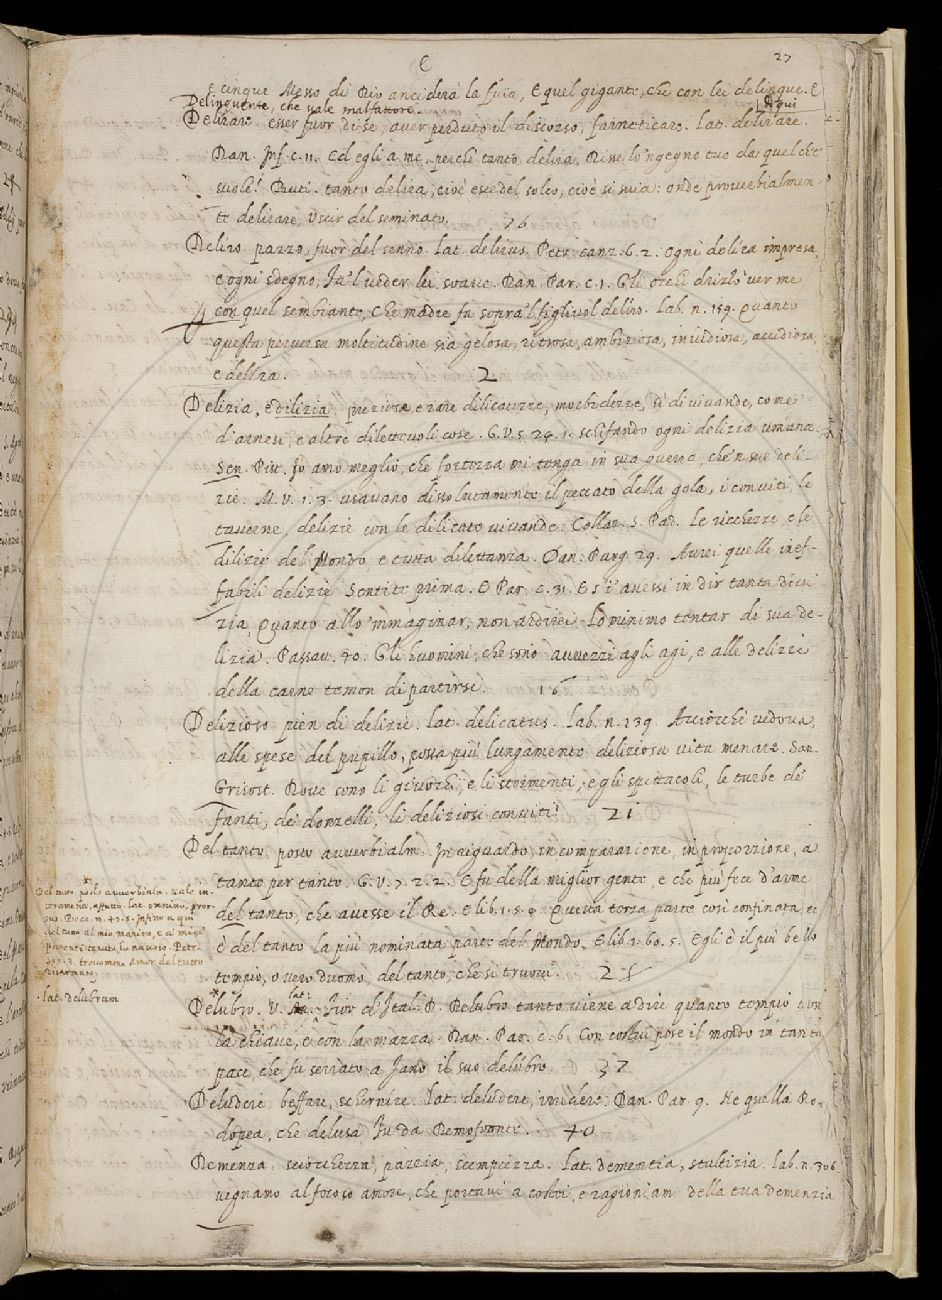 E
27
E cinque Messo di Dio anciderà la fuia, E quel gigante, che con lei delinque. E
Delinquente, che vale malfattore. E qui
Delirare. esser fuor di se, aver perduto il discorso, farneticare. Lat. delirare.
Dan. Inf. c. 11. Ed egli a me, perchè tanto delira, Disse lo 'ngegno tuo da quel che
suole? Buti. tanto delira, cioè esce del solco, cioè si svia: onde proverbialmen-
te delirare, Uscir del seminato. 76
Deliro. pazzo, fuor del senno. Lat. delirus. Petr. canz. 6. 2. Ogni delira impresa,
e ogni sdegno, Fa 'l veder lei soave. Dan. Par. c. 1. Gli occhi drizzò ver me
con quel sembiante, Che madre fa sopra 'l figliuol deliro. Lab. n. 159. Quanto
questa perversa moltitudine sia gelosa, ritrosa, ambiziosa, invidiosa, accidiosa,
e delira. 2
Delizia, e dilizia. preziose, e rare dilicatezze, morbidezze, sì di vivande, come
d'arnesi, e altre dilettevoli cose. G.V. 5. 24. 1. schifando ogni delizia umana.
Sen. Pist. Io amo meglio, che fortezza mi tenga in sua guerra, che 'n sue deli-
zie. M.V. 1. 3. usavano dissolutamente il peccato della gola, i conviti, le
taverne, delizie con le dilicate vivande. Collaz. S. Pad. Le ricchezze, e le
dilizie del Mondo, e tutta dilettanza. Dan. Purg. 29. Avrei quelle inef-
fabili delizie Sentite prima. E Par. c. 31. E s'i' avessi in dir tanta divi
zia, Quanto allo 'mmaginar, non ardirei Lo minimo tentar di sua de-
lizia. Passav. 70. Gli huomini, che sono avvezzi agli agi, e alle delizie
della carne temon di partirsi. 16
Delizioso. pien di delizie. Lat. delicatus. Lab. n. 139. Acciocchè vedova,
alle spese del pupillo, possa più lungamente deliziosa vita menare. San.
Grisost. Dove sono li giuochi, e li stormenti, e gli spettacoli, le turbe de'
fanti, de' donzelli, li deliziosi conviti? 21
Del tanto. posto avverbialm. In riguardo, in comparazione, in proporzione, a
tanto per tanto. G.V. 7. 2. 2. E fu della miglior gente, e che più fece d'arme
del tanto, che avesse il Re. E lib. 1. 5. 9. Questa terza parte così confinata, ec
è del tanto la più nominata parte del Mondo. E lib. 1. 60. 5. Egli è il più bello
tempio, overo duomo, del tanto, che si truovi. 25
Del tutto posto avverbialm. vale in-
teramente, affatto. lat. omnino, pror-
sus. Bocc. n. 43. 5. Infino a qui
del tutto al mio marito, e a' miei
parenti tenuto ho nascoso. Petr.
son. 3. trovommi Amor del tutto
disarmato.
lat. delubrum
Delubro. V. lat. Tito d'Ital. D. Delubro tanto viene a dire quanto tempio con
la chiave, e con la mazza. Dan. Par. c. 6. Con costui pose il mondo in tanta
pace, che fu serrato a Jano il suo delubro. 37
Deludere. beffare, schernire. Lat. deludere, irridere. Dan. Par. 9. Ne quella Ro-
dopea, che delusa Fu da Demofoonte. 40
Demenza. sciocchezza, pazzia, scempiezza. Lat. dementia, stultizia. Lab. n. 306
vegnamo al focoso amore, che portavi a costei, e ragioniam della tua demenzia